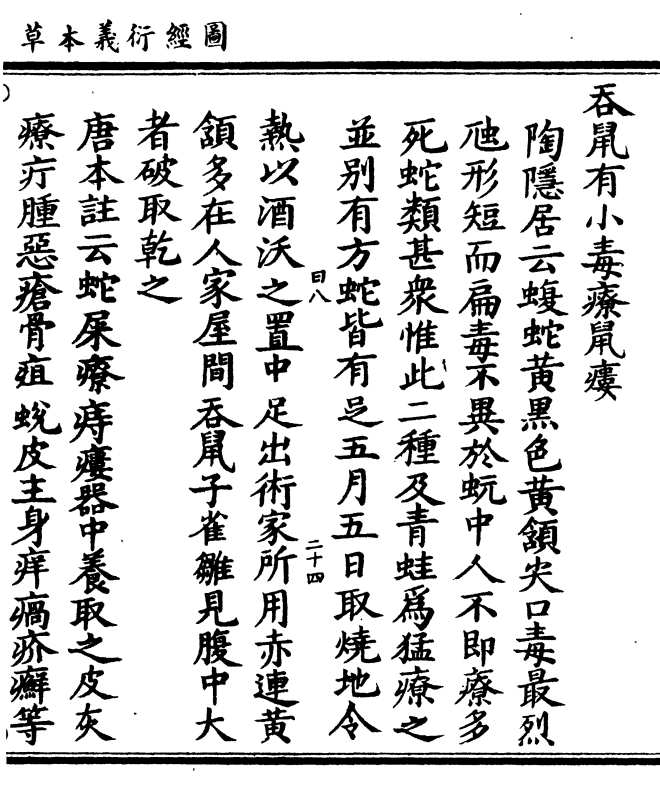 圖經衍義本草
吞鼠有小毒療鼠瘻
陶隱居云蝮蛇黃黑色黃頷尖口毒最烈
虺形短而扁毒不異於蚖中人不即療多
死蛇類甚衆惟此二種及青蛙爲猛療之
並别有方蛇皆有足五月五日取燒地令
熱以酒沃之置中足出術家所用赤連黃
頷多在人家屋間吞鼠子雀雛見腹中大
者破取乾之
唐本註云蛇屎療痔瘻器中養取之皮灰
療疔腫惡瘡骨疽蛻皮主身痒瘑疥癬等
曰八
二十四